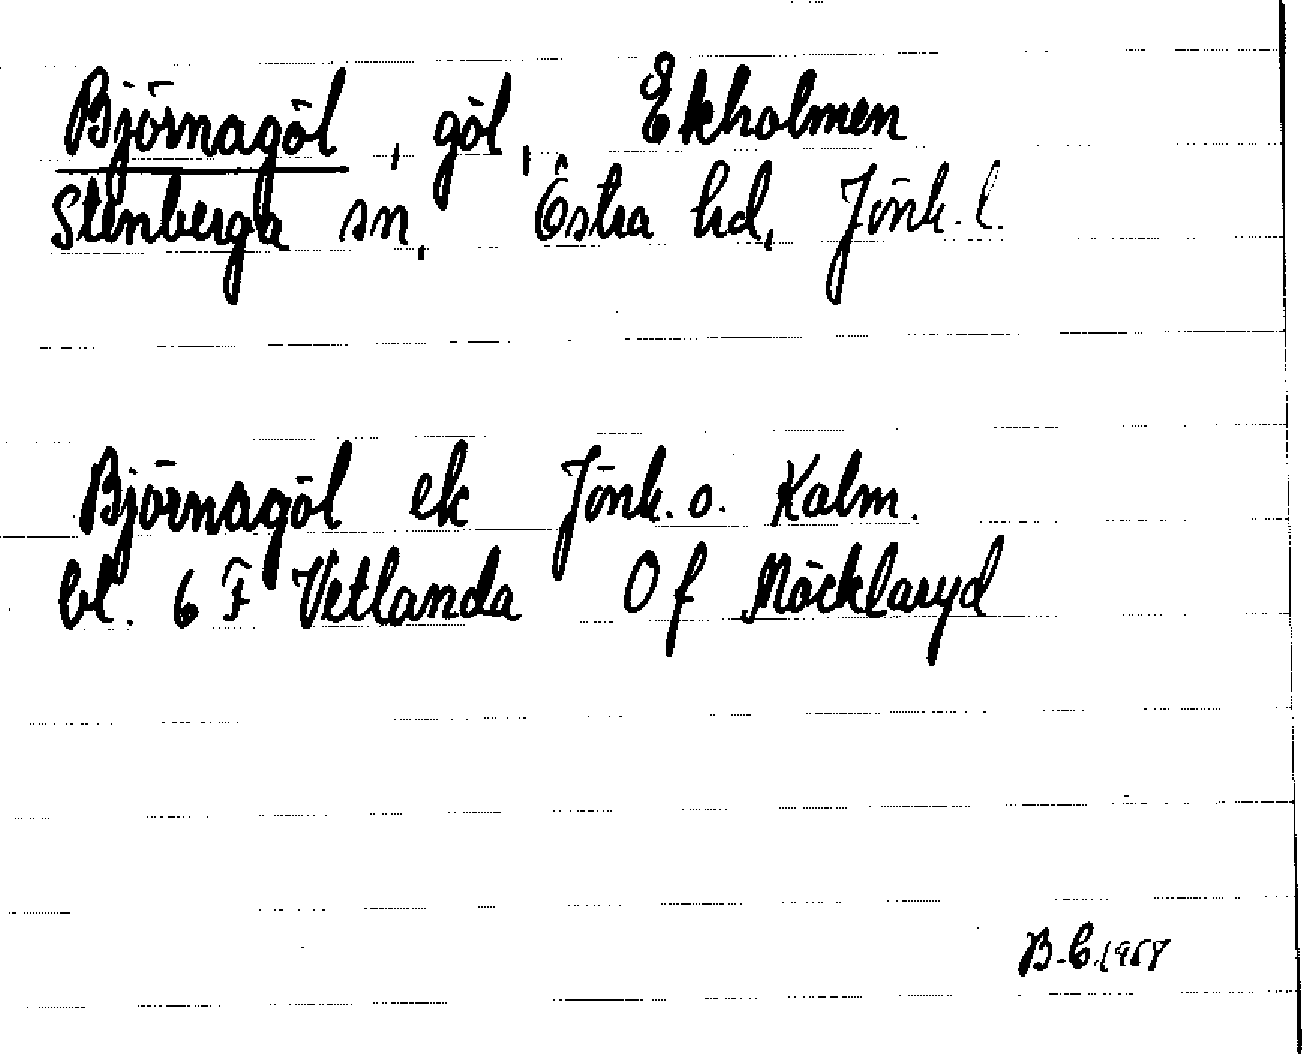 Björnagöl, göl, Ekholmen
Stenberga sn. Östra hd, Jönk. l.
Björnagöl ek Jönk. o. Kalm.
bl. 6 F Vetlanda 0 f Möcklaryd